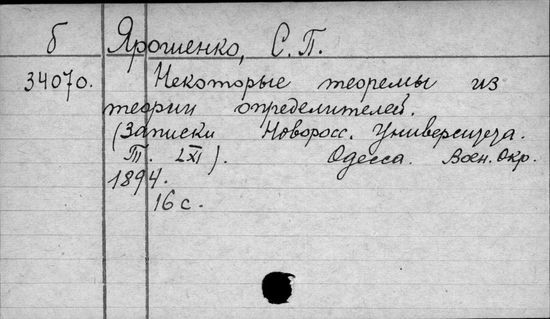 б Ярошенко, С.П.
34070. Некоторые теоремы из
теории определителей.
(Записки Новоросс. Университета.
Т. LXI). Одесса. Воен. Окр.
1894.
16 с.